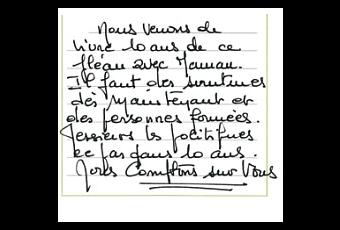 Nous venons de
vivre 10 ans de ce
fléau avec Maman.
Il faut des structures
dès maintenant et
des personnes formées.
Messieurs les politiques
pas dans 10 ans.
Nous Comptons sur Vous